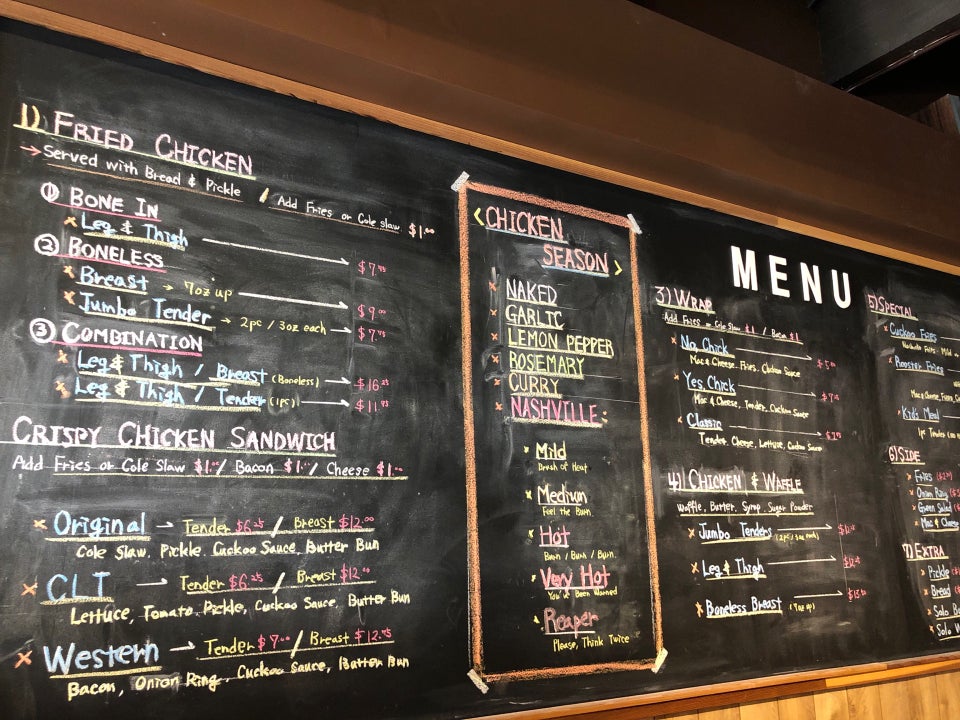 1) FRIED CHICKEN
→ Served with Bread & Pickle / Add Fries or Cole slaw $1.00
① BONE IN
× Leg & Thigh $7.45
② BONELESS
× Breast → 7oz up $9.00
× Jumbo Tender → 2pc / 3oz each $7.45
③ COMBINATION
× Leg & Thigh / Breast (Boneless) $16.25
× Leg & Thigh / Tender (1pc) $11.95
CRISPY CHICKEN SANDWICH
Add Fries or Cole Slaw $1.00 / Bacon $1.00 / Cheese $1.00
× Original → Tender $6.25 / Breast $12.00
Cole Slaw, Pickle, Cuckoo Sauce, Butter Bun
× CLT → Tender $6.25 / Breast $12.00
Lettuce, Tomato, Pickle, Cuckoo Sauce, Butter Bun
× Western → Tender $7.00 / Breast $12.45
Bacon, Onion Ring, Cuckoo Sauce, Butter Bun
< CHICKEN
SEASON >
× NAKED
× GARLIC
× LEMON PEPPER
× ROSEMARY
× CURRY
× NASHVILLE:
Mild
Brush of Heat
Medium
Feel the Burn
Hot
Burn / Burn / Burn
Very Hot
You've Been Warned
Reaper
Please, Think Twice
MENU
3) WRAP
Add Fries or Cole Slaw $1 / Bacon $1
× No Chick
Mac & Cheese, Fries, Cuckoo Sauce
× Yes Chick
Mac & Cheese, Tender, Cuckoo Sauce
× Classic
Tender, Cheese, Lettuce, Cuckoo Sauce
4) CHICKEN & WAFFLE
Waffle, Butter, Syrup, Sugar Powder
× Jumbo Tenders (2pc / 3oz each)
× Leg & Thigh
× Boneless Breast (7oz up)
5) SPECIAL
× Cuckoo Fries
× Rooster Fries
Mac & Cheese, Fries,
× Kid's Meal
1pc Tender
6) SIDE
× Fries
× Onion Ring
× Green Salad
× Mac & Cheese
7) EXTRA
× Pickle
× Bread
× Solo
× Solo